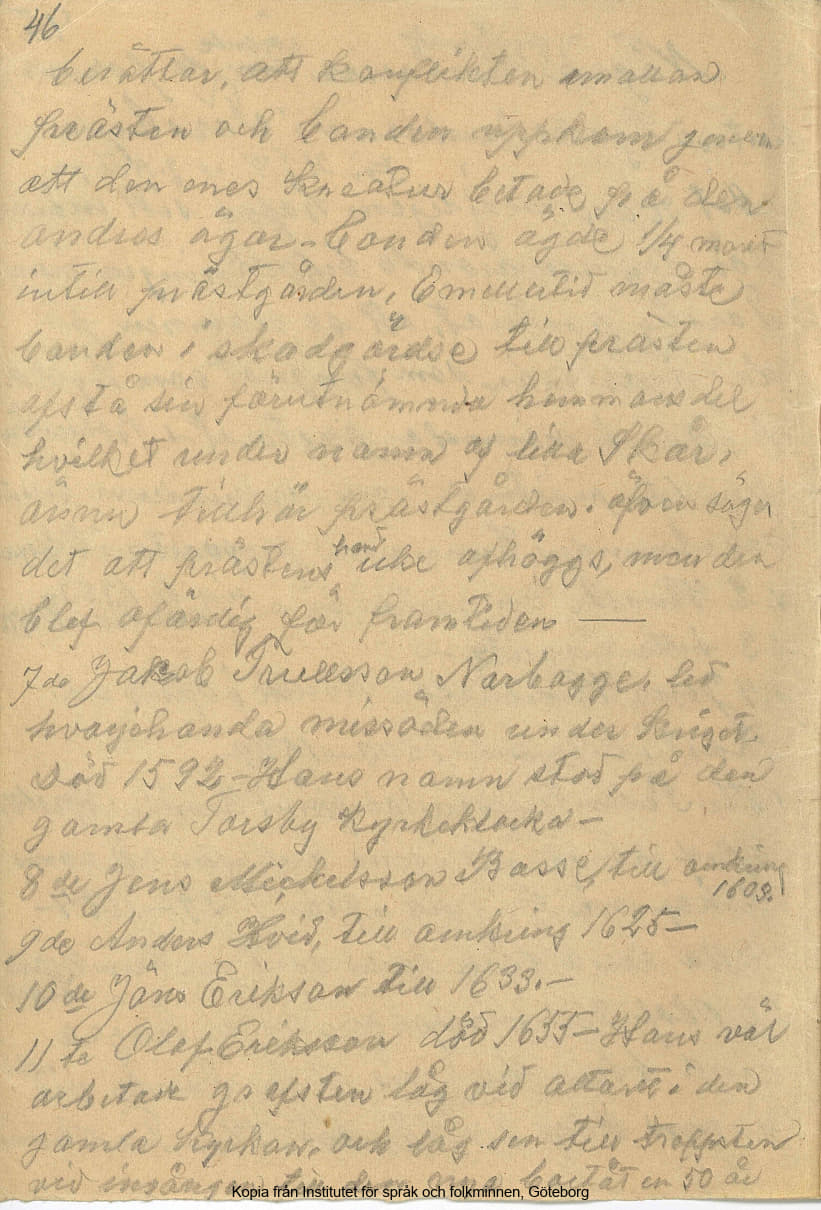 46
berättar, att konflikten emellan
prästen och bonden uppkom genom
att den enes kreatur betade på den
andres ägor - bonden ägde 1/4 mant
intill prästgården, Emellertid måste
bonden i skadgördse till prästen
afstå sin förutnämnda hemmans del
hvilket under namn af lilla Skår,
ännu tillhör prästgården. äfven säges
det att prästens hand icke afhöggs, men den
blef ofärdig för framtiden —
7de Jakob Truedsson Narbagge, led
hvarjehanda missöden under kriget.
Död 1592 - Hans namn stod på den
gamla Torsby kyrkeklocka -
8de Jens Mickelsson Basse, till omkring
1609.
9de Anders Hvid, till omkring 1625 -
10de Jöns Erikson till 1633. -
11te Olof Eriksson död 1655 - Hans väl
arbetade grafsten låg vid altaret i den
gamla kyrkan, och låg sen till troppsten
vid ingången till den nya bortåt en 50 år
Kopia från Institutet för språk och folkminnen, Göteborg